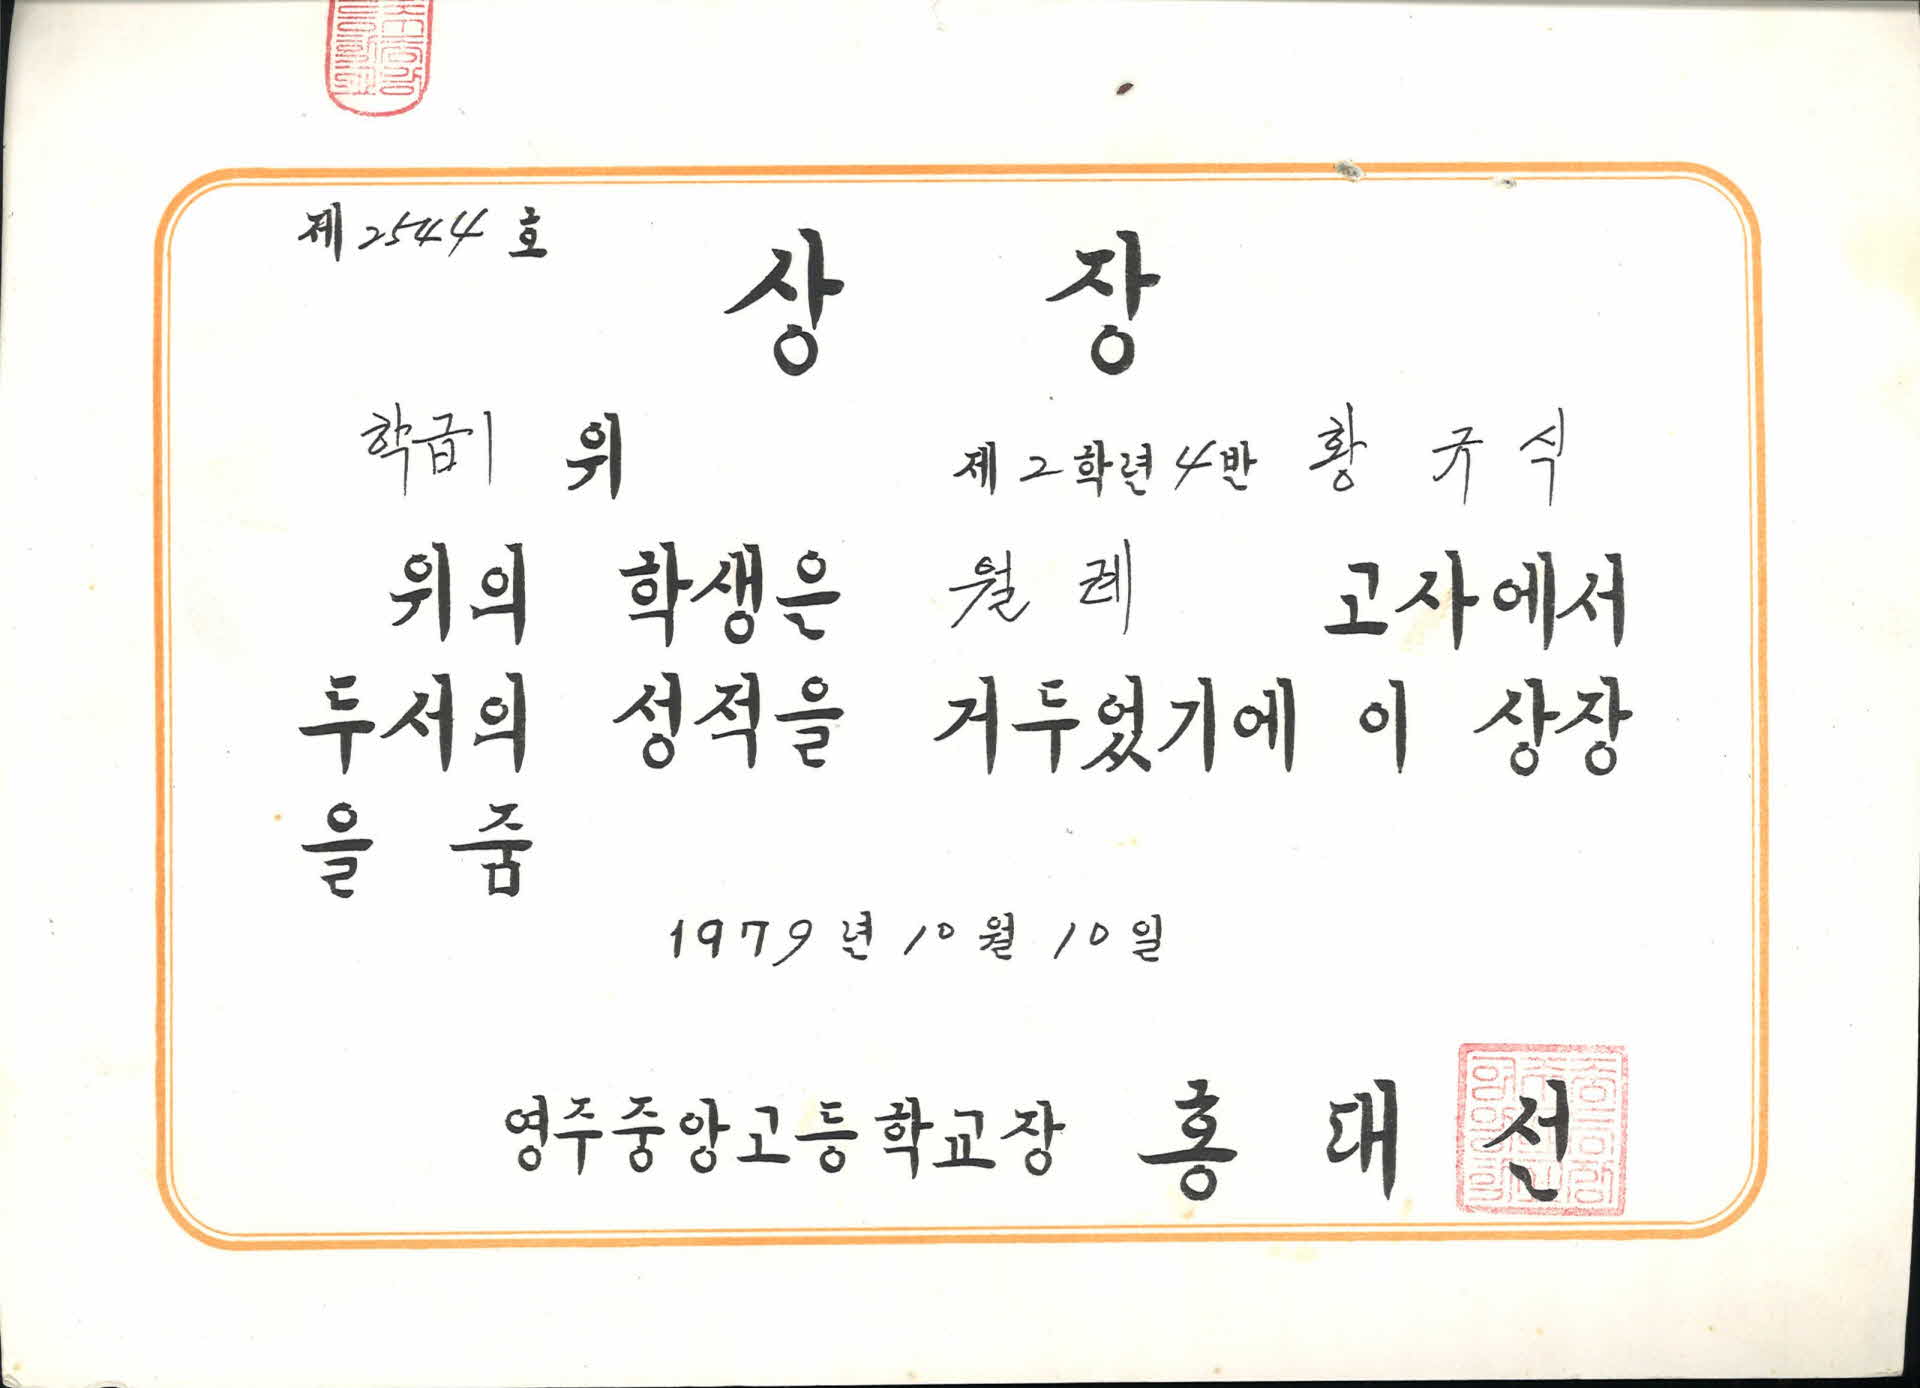 제 2544 호
상 장
학급 1 위
제 2 학년 4 반 황 규 식
위의 학생은 월례 고사에서
두서의 성적을 거두었기에 이 상장
을 줌
1979 년 10 월 10 일
영주중앙고등학교장 홍 대 선